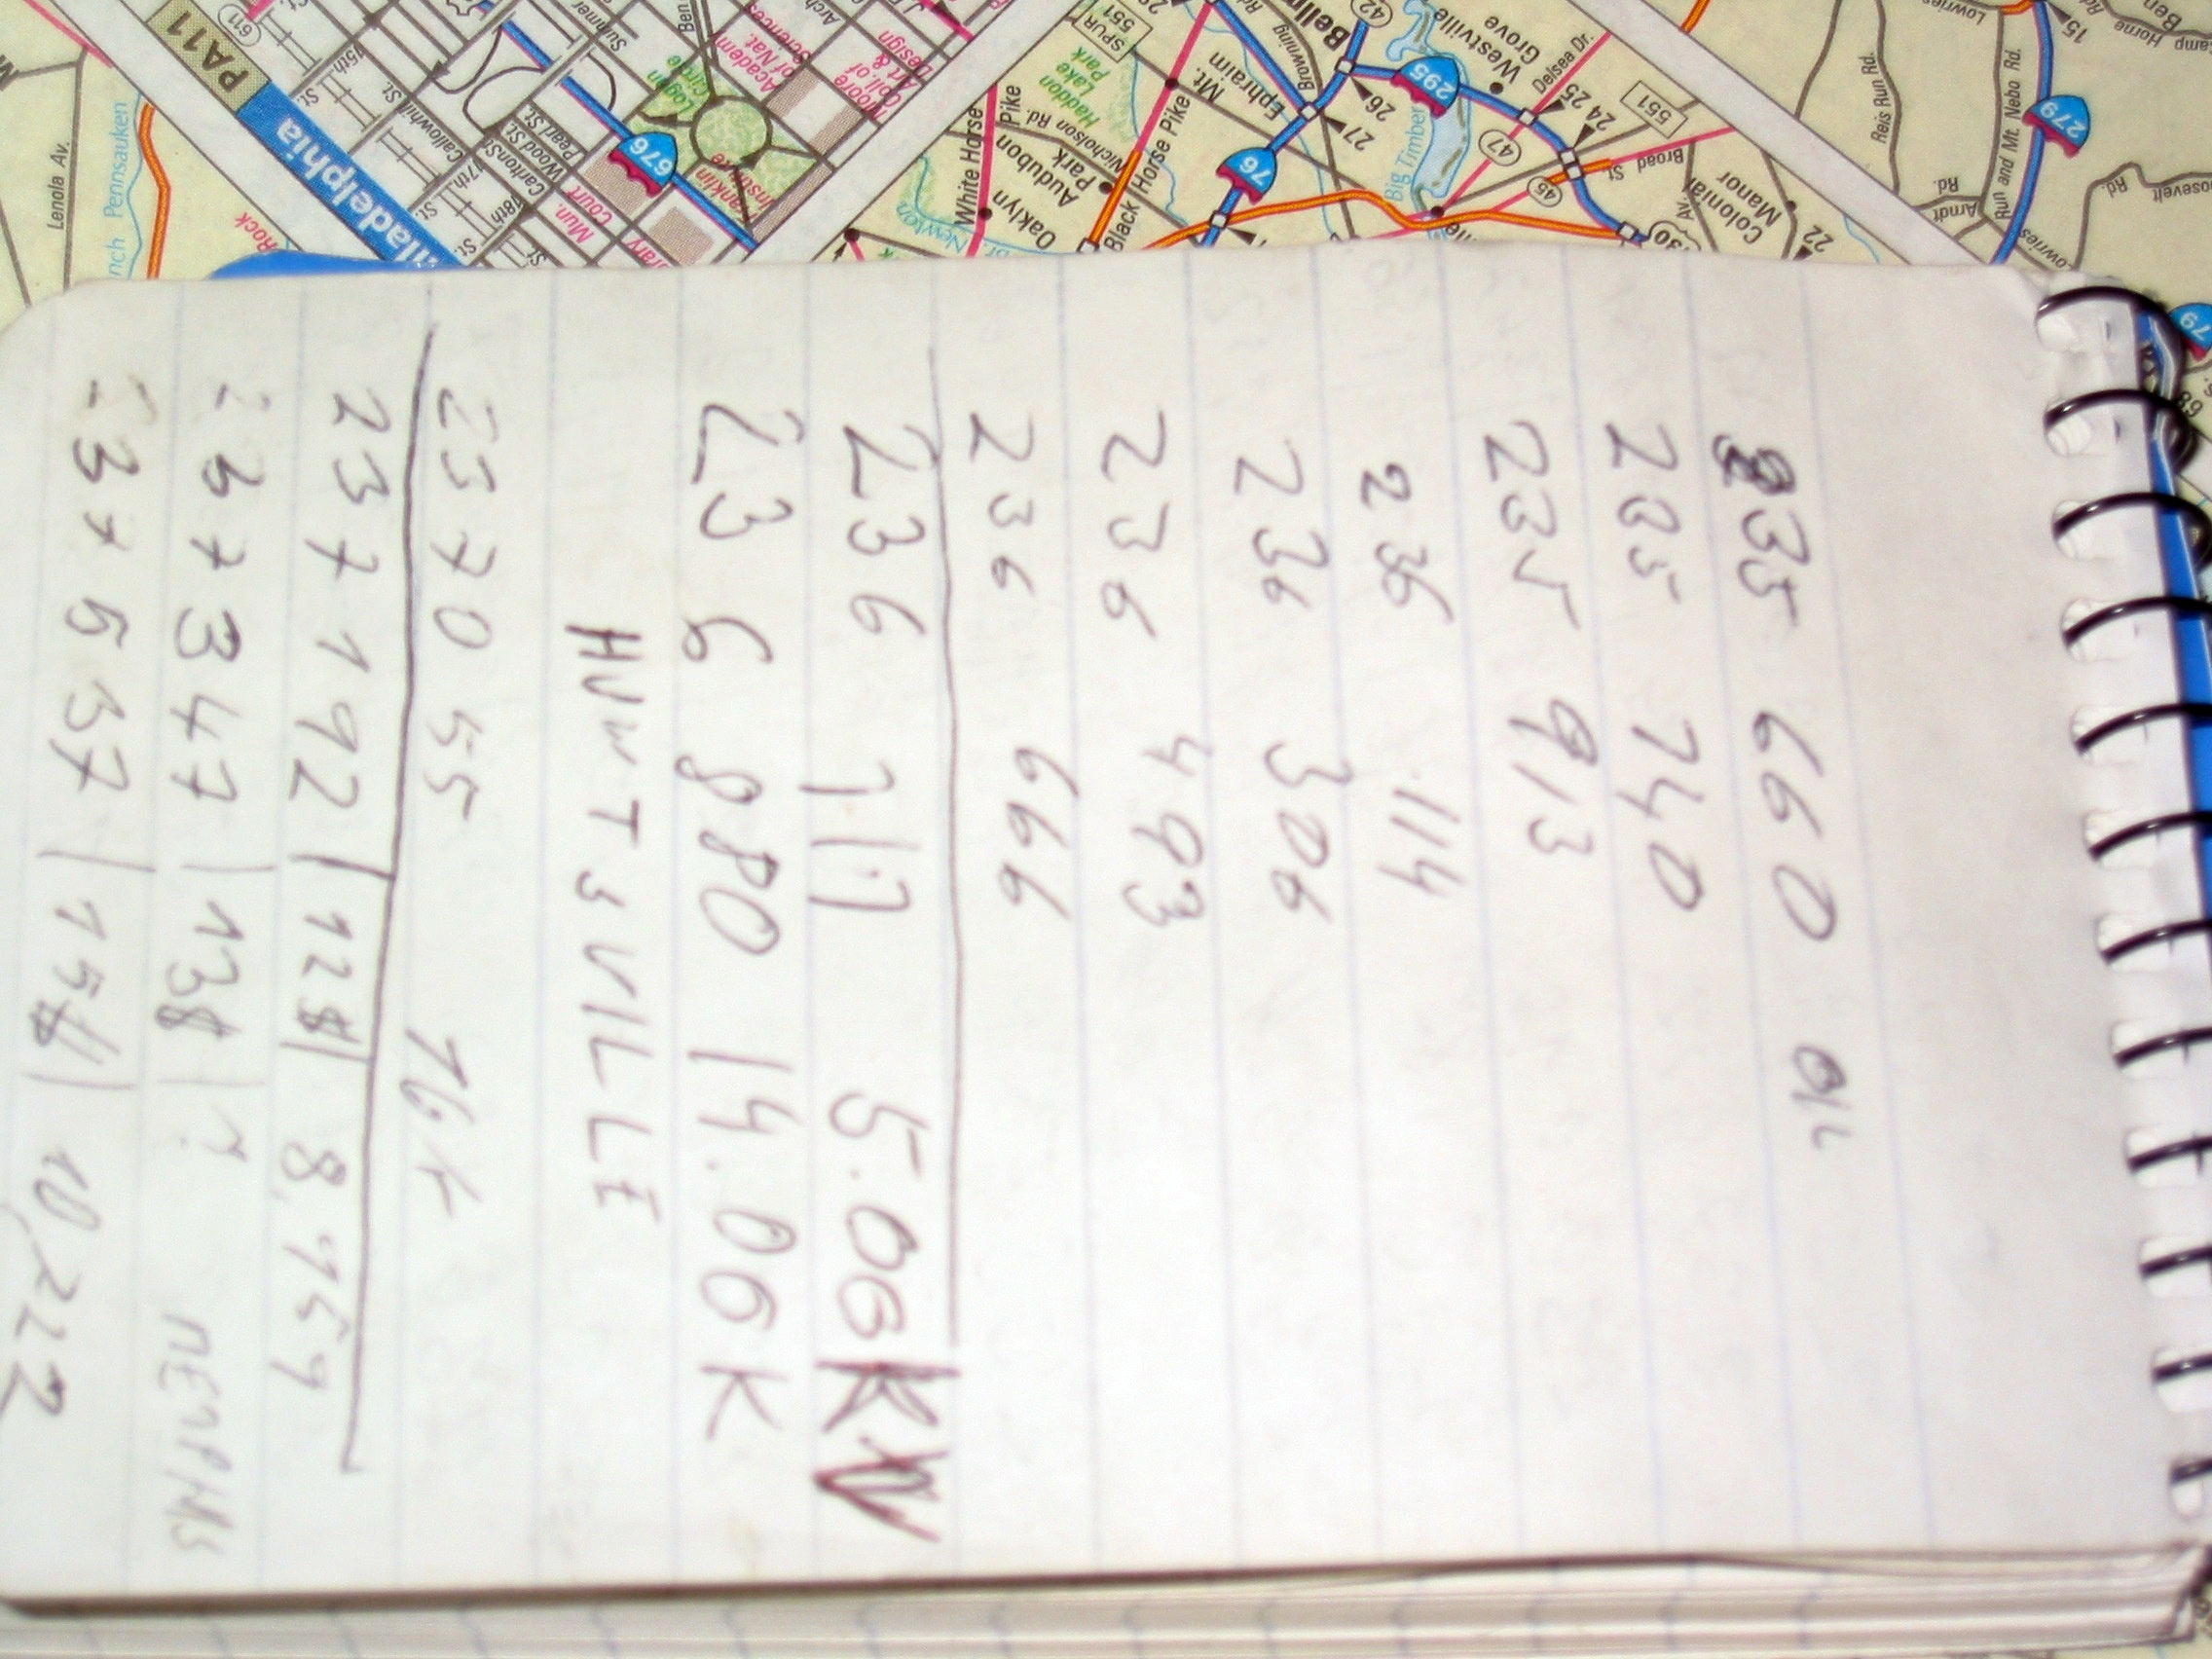 235 660 OIL
235 740
235 913
236 114
236 306
236 493
236 666
236 717 5.06K
23 6 880 14.06K
HUNTSVILLE
23 70 55 16K
237 192 | 12$ | 8,969
347 | 13$ | ?
237 537 | 15$ | 10,222
PA11
Philadelphia
611
15th St.
Callowhill St.
17th St.
Carlton St.
18th St.
Wood St.
Pearl St.
Summer
Mun. Court
676
Logan Circle
Academy of Nat. Sciences
Moore Coll. of Art & Design
Franklin
Lenola Av.
Pennsauken
Rock
White Horse Pike
Oaklyn
Audubon Park
Nicholson Rd.
Black Horse Pike
Haddon Lake Park
SPUR 551
Mt. Ephraim
Browning Rd.
76
42
295
26
27
Big Timber
Westville Grove
Delsea Dr.
24
25
47
551
45
Broad St
130
Colonial Manor
Av.
22
Lowries
Reis Run Rd.
Arndt Rd.
Run and Mt. Nebo Rd.
279
15
Camp Horne
Rd.
79
68